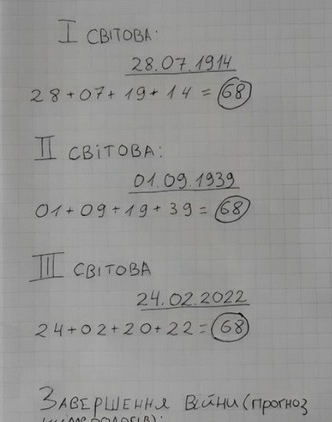 I СВІТОВА:
28.07.1914
28+07+19+14=68
II СВІТОВА:
01.09.1939
01+09+19+39=68
III СВІТОВА
24.02.2022
24+02+20+22=68
ЗАВЕРШЕННЯ ВІЙНИ (ПРОГНОЗ